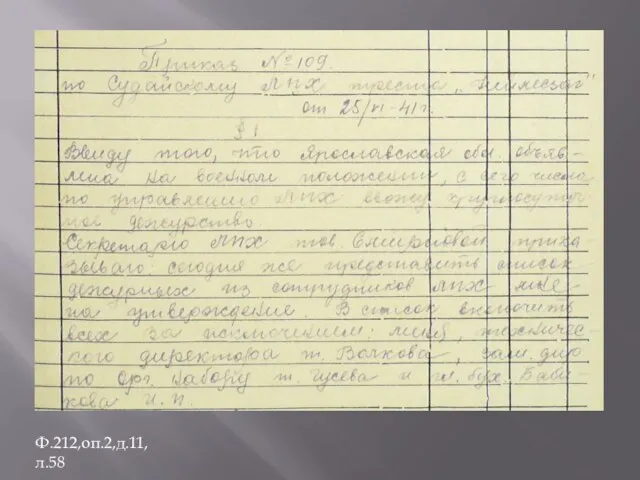 Приказ № 109.
по Судайскому ЛПХ треста „
от 25/XI-41 г.
§ 1
Ввиду того, что Ярославская обл. объяв-
лена на военном положении, с сего числа
по управлению ЛПХ ввожу круглосуточ-
ное дежурство
Секретарю ЛПХ тов. Смирновой прика-
зываю: сегодня же представить список
дежурных из сотрудников ЛПХ мне-
на утверждение. В список включить
всех за исключением: меня, техничес-
кого директора т. Волкова, зам. дир
по орг. набору т. Гусева и гл. бух. Баби-
кова И. П.
Ф.212,оп.2,д.11,
л.58